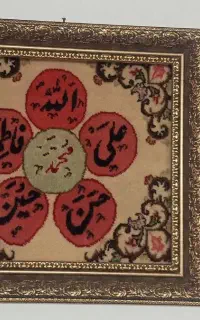 الله
علی
فاطمه
محمد
حسن
حسین